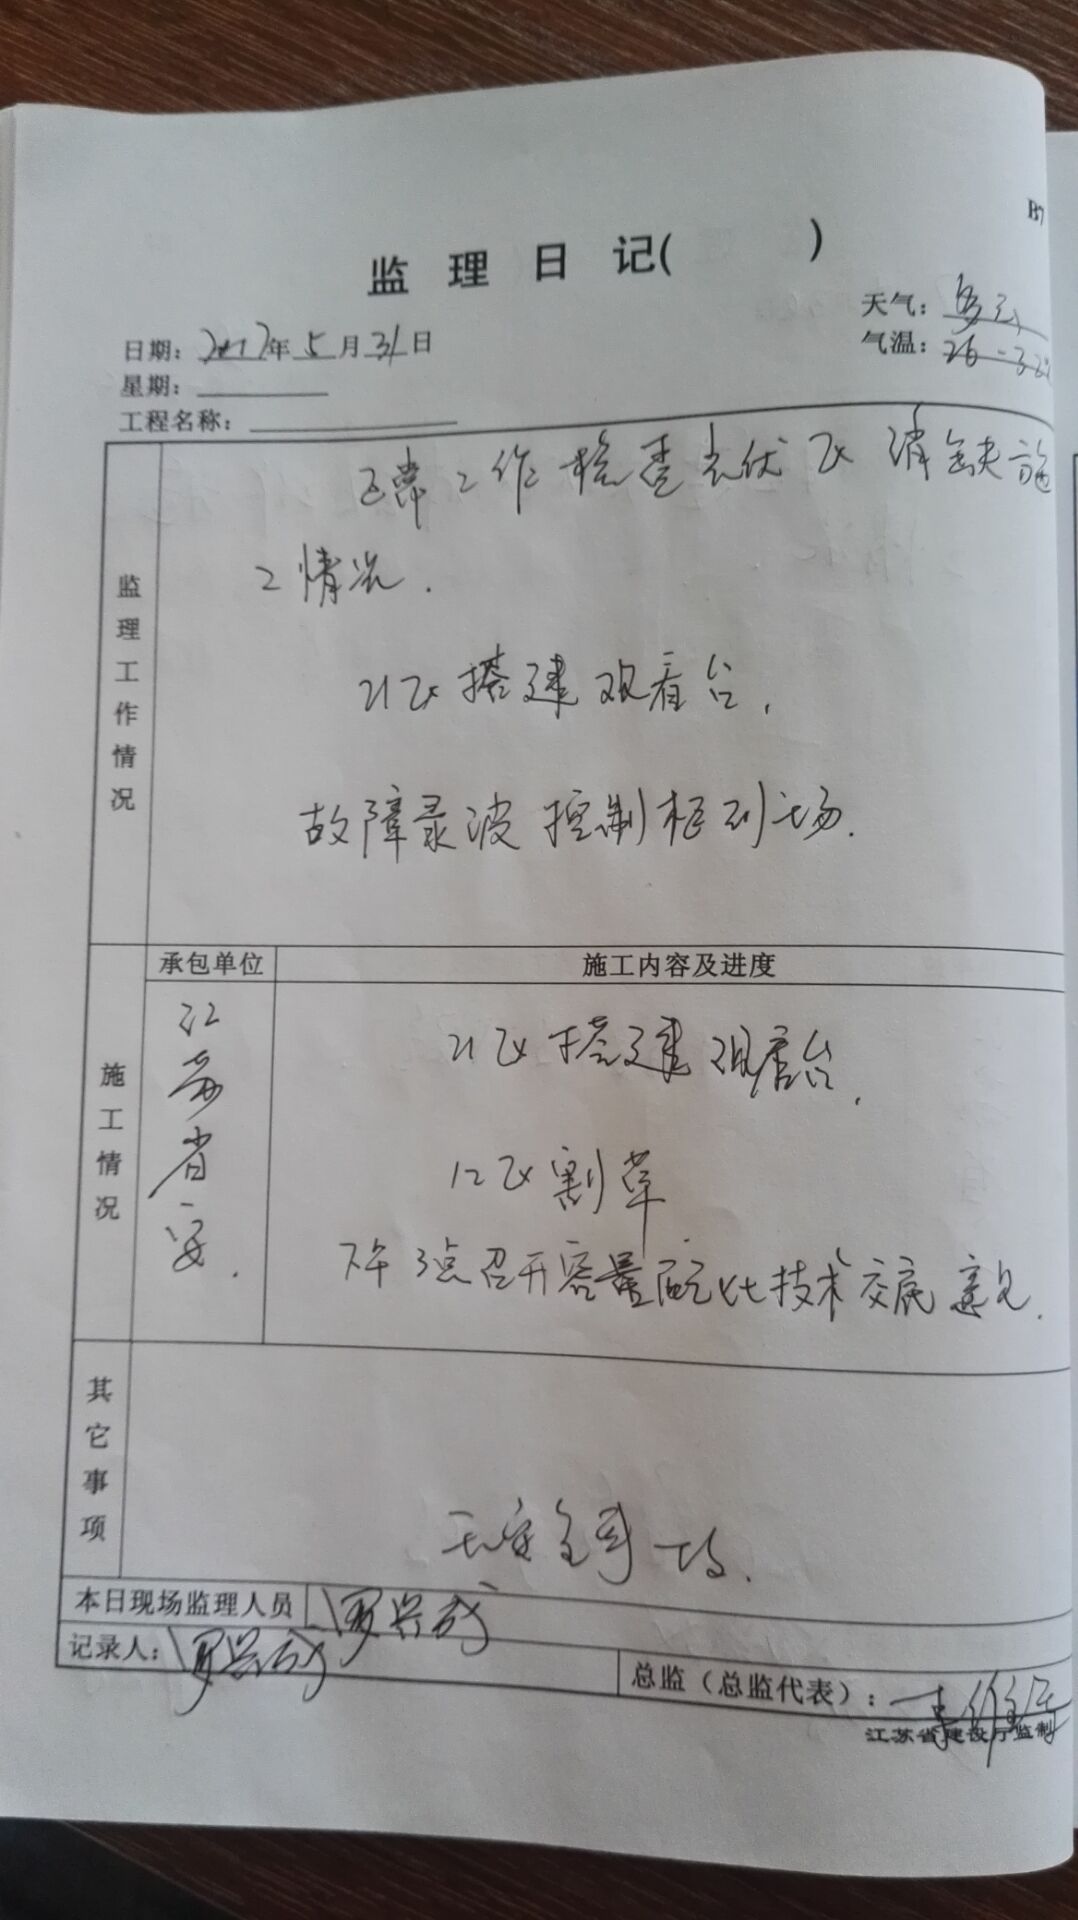 B7
监理日记( )
天气：多云
日期：2017年5月31日
气温：26-32℃
星期：
工程名称：
监理工作情况
正常工作检查光伏区消缺施
工情况.
21区搭建观看台.
故障录波控制柜到场.
施工情况
承包单位
施工内容及进度
江苏省安.
21区搭建观看台.
12区割草
下午3点召开容量配比技术交底意见.
其它事项
无安全事故.
本日现场监理人员
记录人：
总监（总监代表）：
江苏省建设厅监制